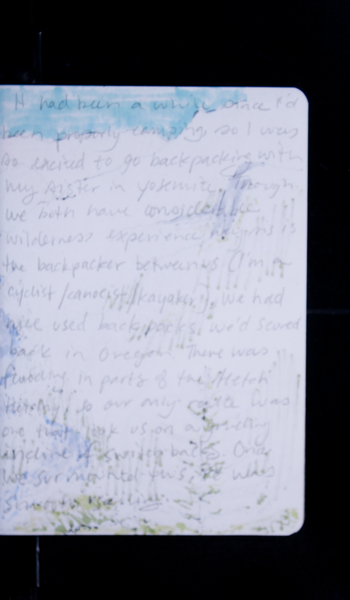 It had been a while since I'd
been properly camping, so I was
so excited to go backpacking with
my sister in Yosemite. Though
we both have considerable
wilderness experience, is
the backpacker between us (I'm a
cyclist/canoeist/kayaker). We had
nice used backpacks we'd scored
back in Oregon. There was
flooding in parts of the Hetch
Hetchy, so our only was
one that took us on a
incline of switchbacks. Once
we surmounted this, it was
smooth sailing